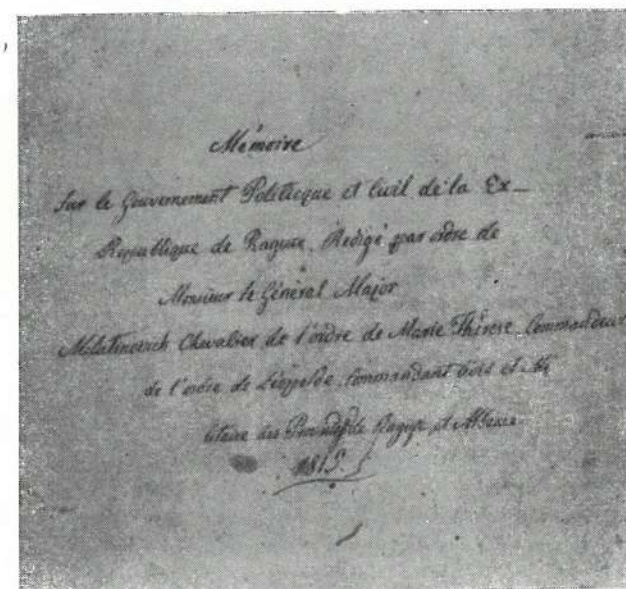 Mémoire
Sur le Gouvernement Politicque et Civil de la Ex-
Republique de Raguse, Redigé par ordre de
Monsieur le Général Major
Milutinovich Chevalier de l'ordre de Marie Thérese, Commandeur
de l'ordre de Léopolde, Commandant Civil et Mi
litaire des de Raguse, et Albanie.
1815.